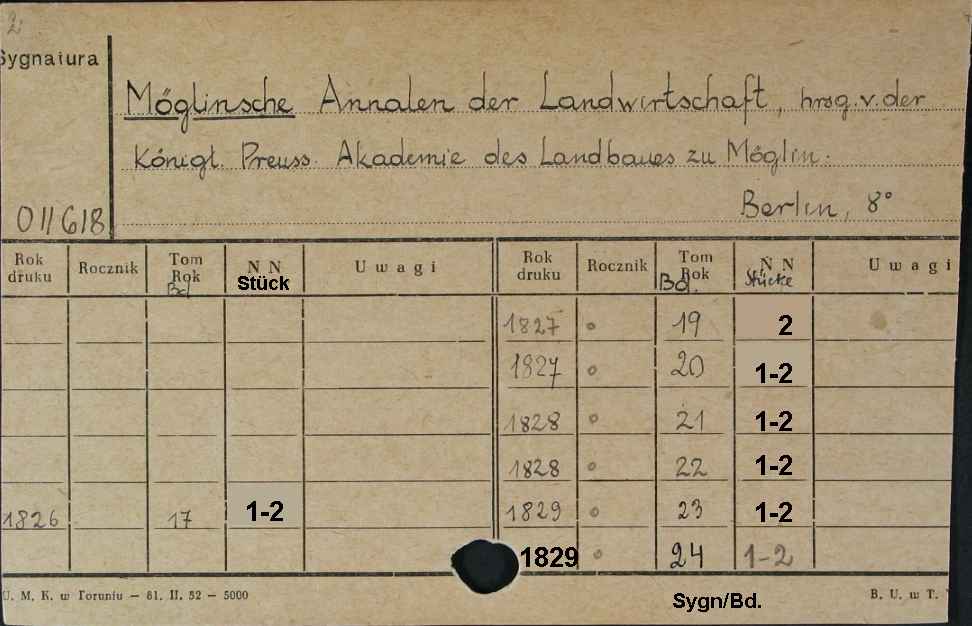 2
Sygnatura
Möglinsche Annalen der Landwirtschaft, hrsg. v. der
Königl. Preuss. Akademie des Landbaues zu Möglin.
Berlin, 8°
011618
Rok druku Rocznik Tom Rok Bd. N N Stück Uwagi Rok druku Rocznik Tom Rok Bd. N N Stücke Uwagi
1827 ° 19 2
1827 ° 20 1-2
1828 ° 21 1-2
1828 ° 22 1-2
1826 17 1-2 1829 ° 23 1-2
1829 ° 24 1-2
U. M. K. w Toruniu — 81. II. 52 — 5000
Sygn/Bd.
B. U. w T.